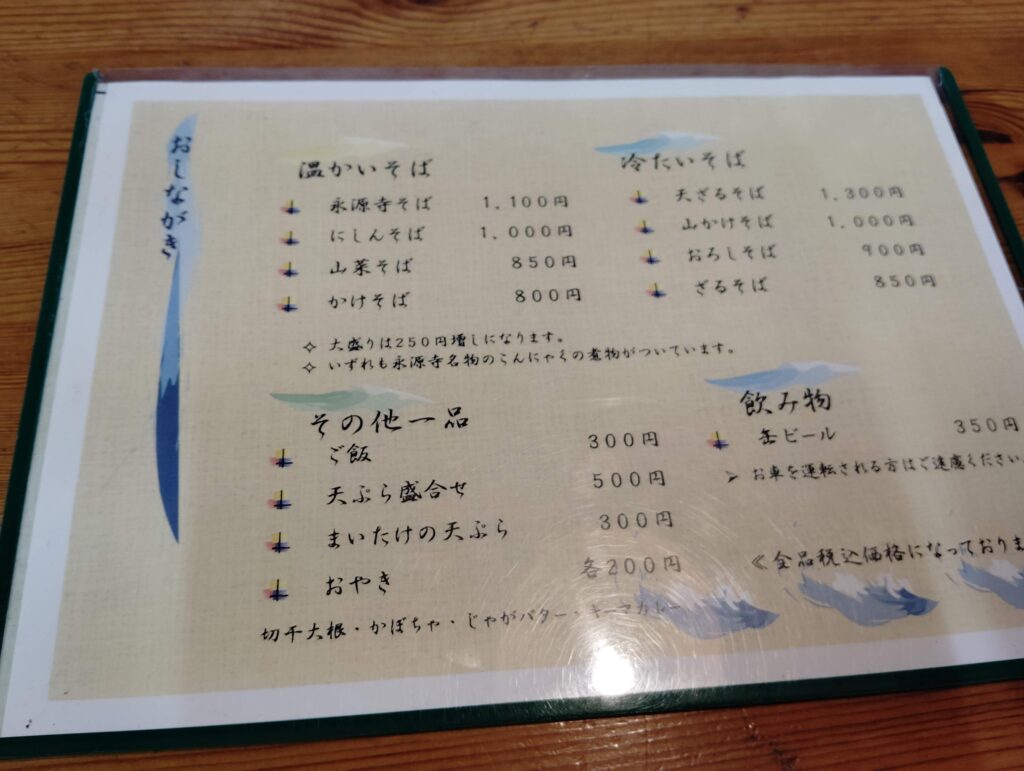 おしながき
温かいそば
永源寺そば 1,100円
にしんそば 1,000円
山菜そば 850円
かけそば 800円
冷たいそば
天ざるそば 1,300円
山かけそば 1,000円
おろしそば 900円
ざるそば 850円
✧ 大盛りは250円増しになります。
✧ いずれも永源寺名物のこんにゃくの煮物がついています。
その他一品
ご飯 300円
天ぷら盛合せ 500円
まいたけの天ぷら 300円
おやき 各200円
切干大根・かぼちゃ・じゃがバター・キーマカレー
飲み物
缶ビール 350円
➢ お車を運転される方はご遠慮ください
≪全品税込価格になっておりま